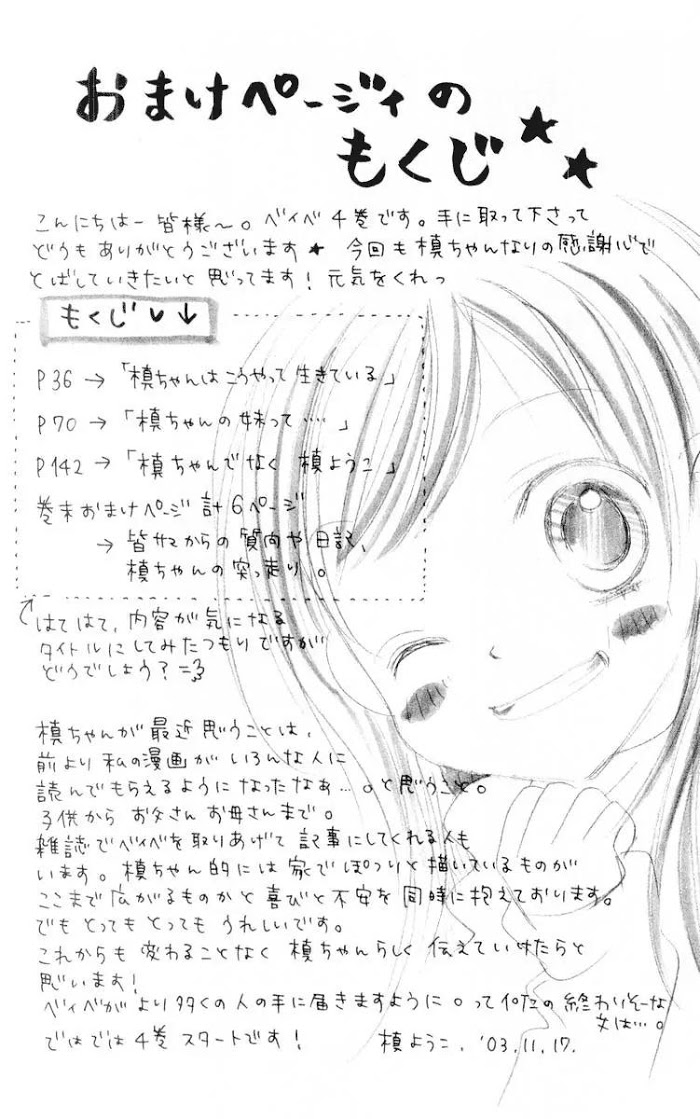 おまけページィの
もくじ★★
こんにちはー皆様〜。ベイベ4巻です。手に取って下さって
どうもありがとうございます★ 今回も槙ちゃんなりの感謝心で
とばしていきたいと思ってます!元気をくれっ
もくじ♥↓
P36→「槙ちゃんはこうやって生きている」
P70→「槙ちゃんの妹って……」
P142→「槙ちゃんでなく 槙ようこ」
巻末おまけページ 計6ページ
→皆サマからの質問や日記、
槙ちゃんの突っ走り。
はてはて、内容が気になる
タイトルにしてみたつもりですが
どうでしょう?
槙ちゃんが最近思うことは、
前より私の漫画がいろんな人に
読んでもらえるようになったなぁ…。と思うこと。
子供からお父さんお母さんまで。
雑誌でベイベを取りあげて記事にしてくれる人も
います。槙ちゃん的には家でぽつりと描いているものが
ここまで広がるものかと喜びと不安を同時に抱えております。
でもとってもとってもうれしいです。
これからも変わることなく槙ちゃんらしく伝えていけたらと
思います!
ベイベがより多くの人の手に届きますように。って の終わりそーな
文は…。
ではでは4巻スタートです!
槙ようこ. '03.11.17.